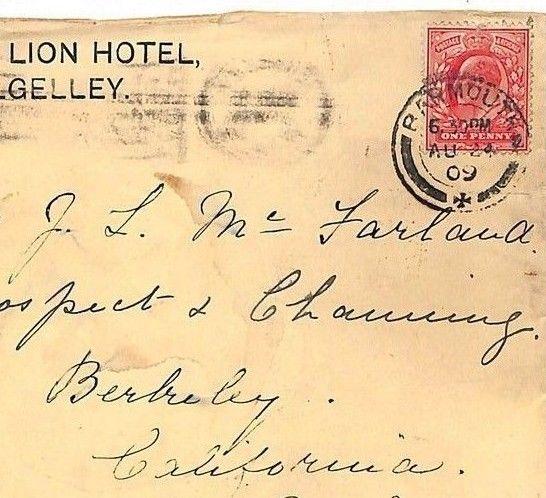 LION HOTEL,
LGELLEY.
POSTAGE & REVENUE
ONE PENNY
BARMOUTH
6 30 PM
AU 24
09
J. L. Mc Farland.
ospect & Channing.
Berkeley.
California.